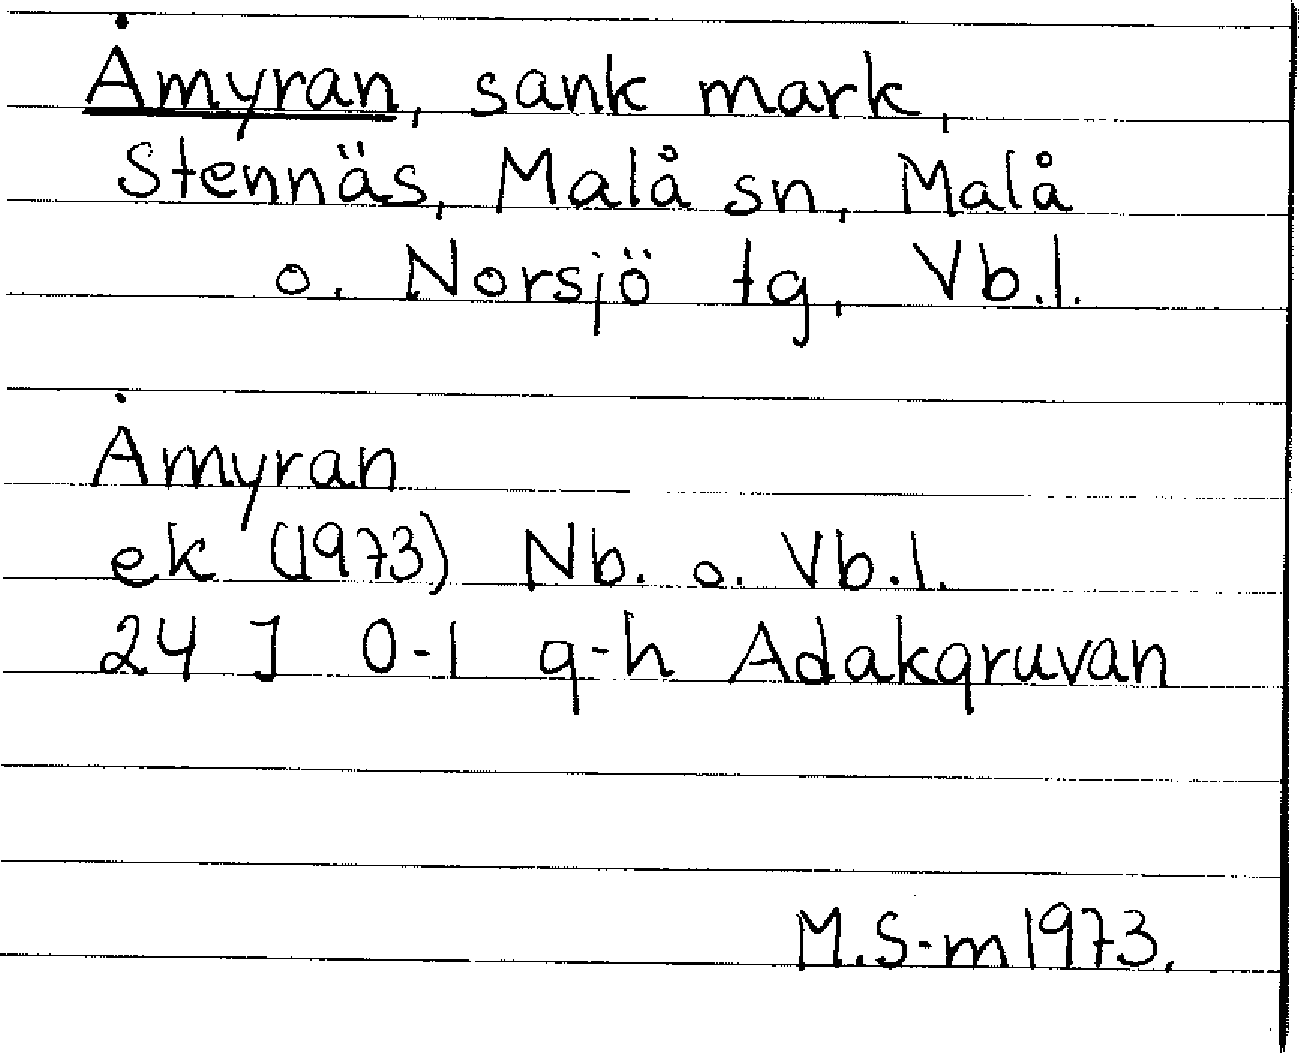 Åmyran, sank mark,
Stennäs, Malå sn, Malå
o. Norsjö tg, Vb.l.
Åmyran
ek (1973) Nb. o. Vb.l.
24 J 0-1 g-h Adakgruvan
M.S-m 1973.